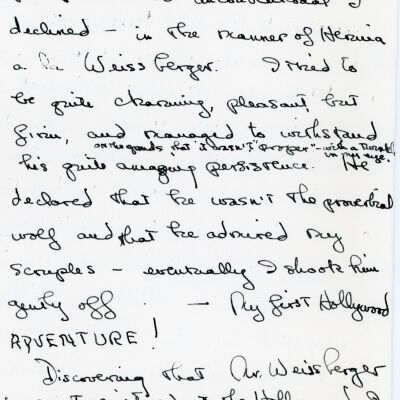 declined – in the manner of Hermia
a la Weissberger. I tried to
be quite charming, pleasant, but
firm, and managed to withstand
on the grounds that it wasn't "proper" – with a
his quite amazing persistence. He
declared that he wasn't the proverbial
wolf and that he admired my
scruples – eventually I shook him
gently off — My first Hollywood
ADVENTURE!
Discovering that Mr. Weissberger